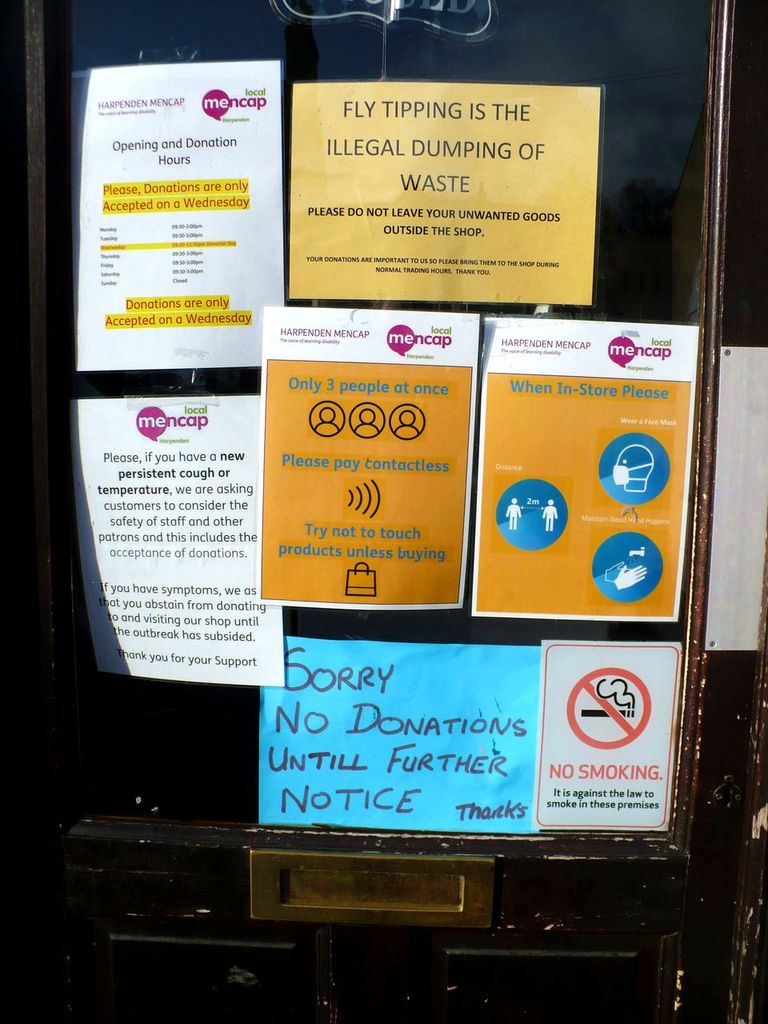 HARPENDEN MENCAP
The voice of learning disability
local
mencap
Harpenden
Opening and Donation
Hours
Please, Donations are only
Accepted on a Wednesday
Monday 09:30-3:00pm
Tuesday 09:30-3:00pm
Wednesday 09:30-12:30pm Donation Day
Thursday 09:30-3:00pm
Friday 09:30-3:00pm
Saturday 09:30-3:00pm
Sunday Closed
Donations are only
Accepted on a Wednesday
FLY TIPPING IS THE
ILLEGAL DUMPING OF
WASTE
PLEASE DO NOT LEAVE YOUR UNWANTED GOODS
OUTSIDE THE SHOP.
YOUR DONATIONS ARE IMPORTANT TO US SO PLEASE BRING THEM TO THE SHOP DURING
NORMAL TRADING HOURS. THANK YOU.
local
mencap
Harpenden
Please, if you have a new
persistent cough or
temperature, we are asking
customers to consider the
safety of staff and other
patrons and this includes the
acceptance of donations.
If you have symptoms, we as
that you abstain from donating
to and visiting our shop until
the outbreak has subsided.
Thank you for your Support
HARPENDEN MENCAP
The voice of learning disability
local
mencap
Harpenden
Only 3 people at once
Please pay contactless
Try not to touch
products unless buying
HARPENDEN MENCAP
The voice of learning disability
local
mencap
Harpenden
When In-Store Please
Wear a Face Mask
Distance
2m
Maintain Good Hand Hygiene
SORRY
NO DONATIONS
UNTILL FURTHER
NOTICE Thanks
NO SMOKING.
It is against the law to
smoke in these premises